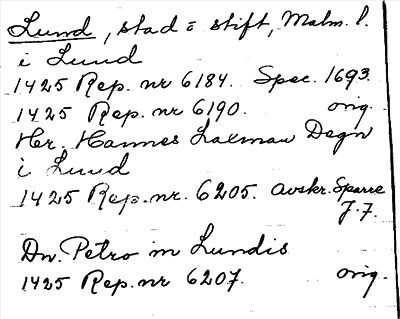 Lund, stad o stift, Malm. l.
i Lund
1425 Rep. nr 6184. Spec. 1693.
1425 Rep. nr 6190. orig.
Her. Hannes Laxman Degn
i Lund
1425 Rep. nr. 6205. Avskr. Sparre
J. 7.
Dn. Petro in Lundis
1425 Rep. nr 6207. orig.